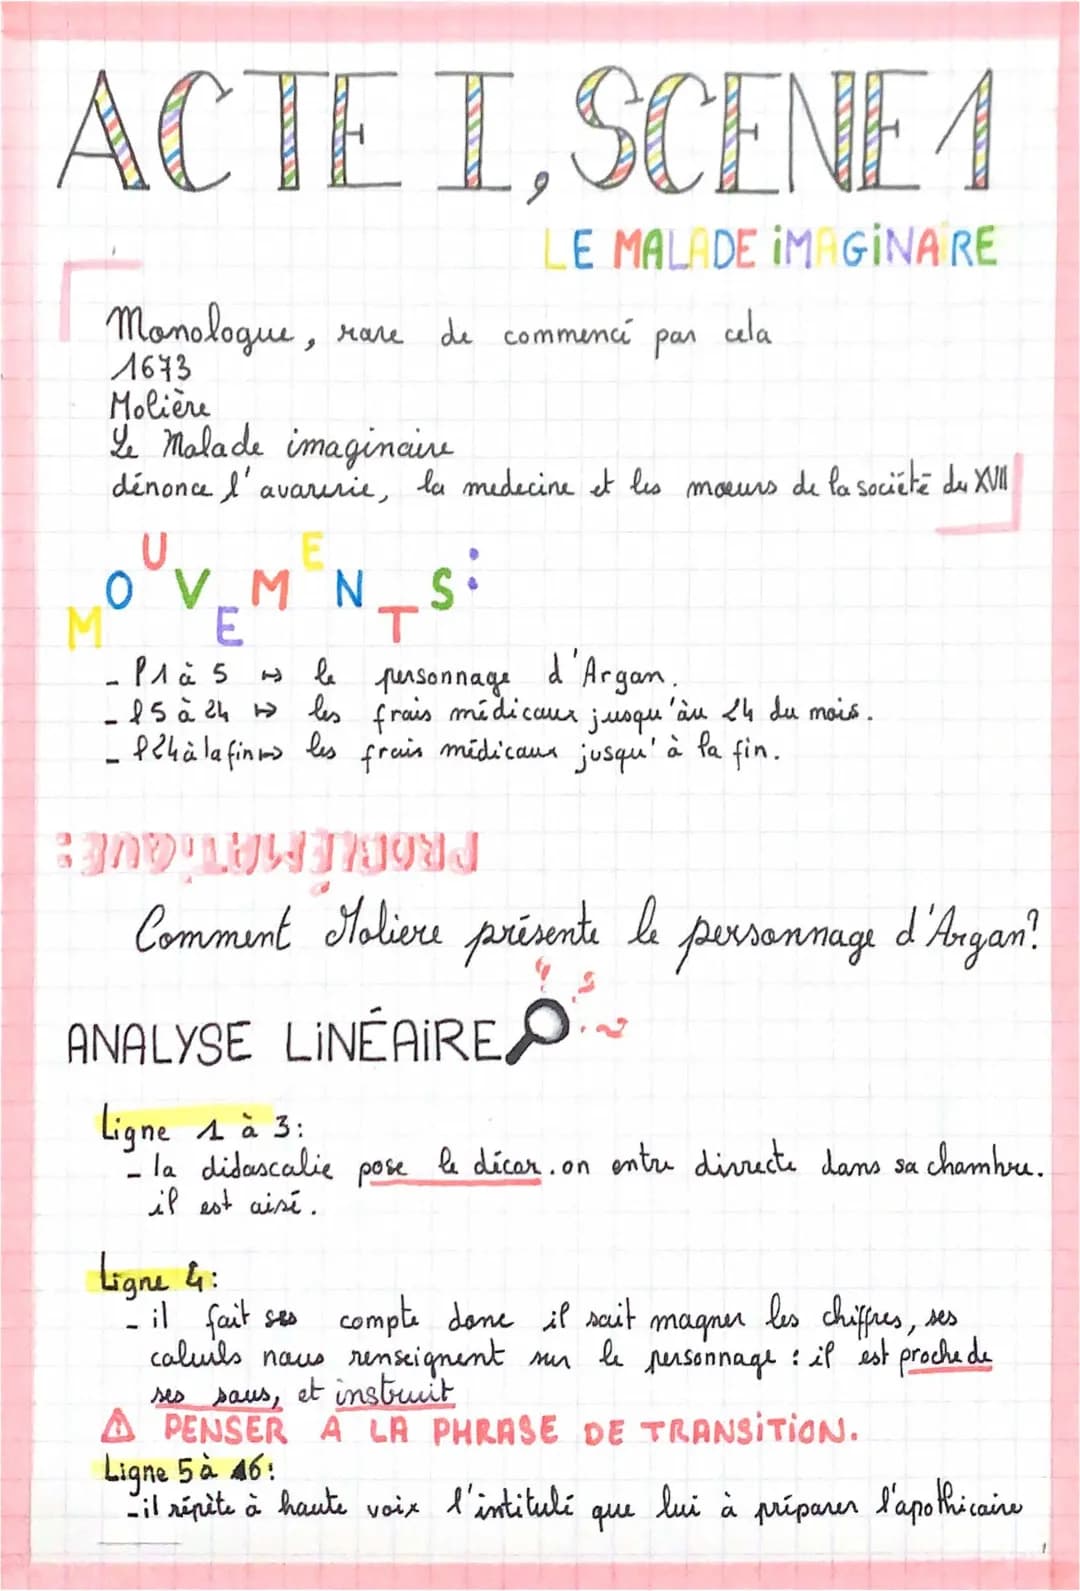 ACTE I, SCENE 1
LE MALADE iMAGiNAiRE
Monologue, rare de commencé par cela
1673
Molière
Le Malade imaginaire
dénonce l'avarerie, la medecine et les mœurs de la société du XVII
MOUVEMENTS:
- l1 à 5 ↦ le personnage d'Argan.
- l5 à 24 ↦ les frais médicaux jusqu'àu 24 du mois.
- l24 à la fin ↦ les frais médicaux jusqu'à la fin.
PROBLÉMATiQUE:
Comment Molière présente le personnage d'Argan?
ANALYSE LiNÉAiRE
Ligne 1 à 3:
- la didascalie pose le décor. on entre dirrecte dans sa chambre.
il est aisé.
Ligne 4:
- il fait ses compte donc il sait magner les chiffres, ses
calculs nous renseignent sur le personnage : il est proche de
ses sous, et instruit
⚠ PENSER A LA PHRASE DE TRANSiTiON.
Ligne 5 à 16:
- il répète à haute voix l'intitulé que lui à préparer l'apothicaire
1